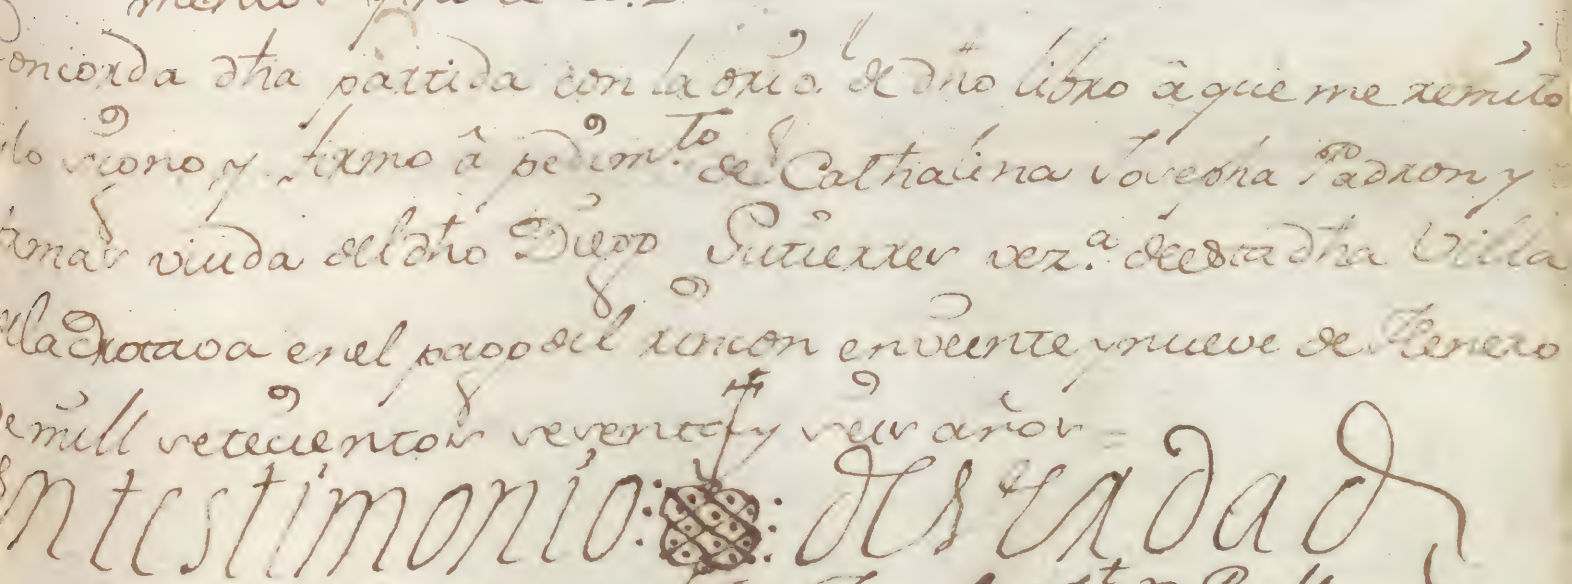 Concorda dha partida con la orixl. de dho libro â que me remito
lo signo y firmo â pedimto. de Cathalina Josepha Padron y
Armas viuda del dho Diego Gutierres veza. de esta dha Villa
de la Orotava en el pago del rincon en veinte y nueve de Henero
de mill setecientos sesenta y seis años =
En testimonio : de verdad